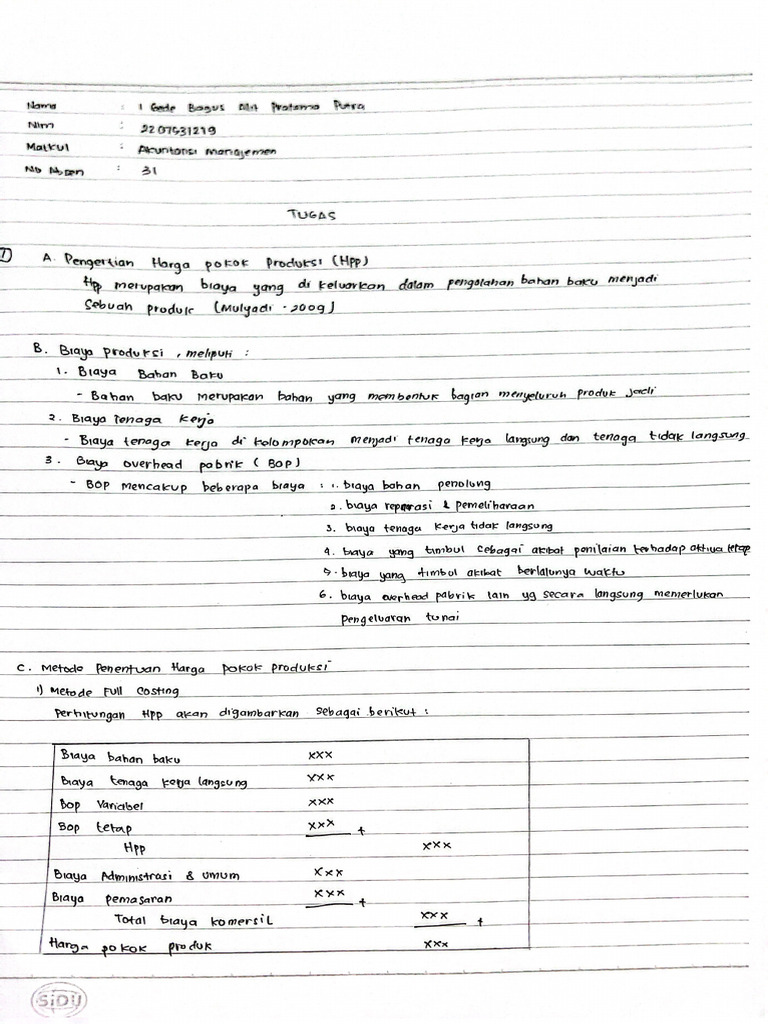 Nama : I Gede Bagus Alit Pratama Putra
Nim : 2207531219
Matkul : Akuntansi Manajemen
No Absen : 31
TUGAS
1 A. Pengertian Harga pokok Produksi (HPP)
Hp merupakan biaya yang di keluarkan dalam pengolahan bahan baku menjadi
Sebuah produk (Mulyadi · 2009)
B. Biaya produksi , meliputi :
1. Biaya Bahan Baku
- Bahan baku merupakan bahan yang membentuk bagian menyeluruh produk jadi
2. Biaya tenaga kerja
- Biaya tenaga kerja di kelompokan menjadi tenaga kerja langsung dan tenaga tidak langsung
3. Biaya overhead pabrik ( BOP )
- BOP mencakup beberapa biaya : 1. biaya bahan penolong
2. biaya reparasi & pemeliharaan
3. biaya tenaga kerja tidak langsung
4. biaya yang timbul sebagai akibat penilaian terhadap aktiva tetap
5. biaya yang timbul akibat berlalunya waktu
6. biaya overhead pabrik lain yg secara langsung memerlukan
pengeluaran tunai
C. Metode Penentuan Harga pokok produksi
1) Metode Full Costing
Perhitungan HPP akan digambarkan sebagai berikut :
Biaya bahan baku xxx
Biaya tenaga kerja langsung xxx
Bop Variabel xxx
Bop tetap xxx +
Hpp xxx
Biaya Administrasi & umum xxx
Biaya pemasaran xxx +
Total biaya komersil xxx +
Harga pokok produk xxx
SiDU